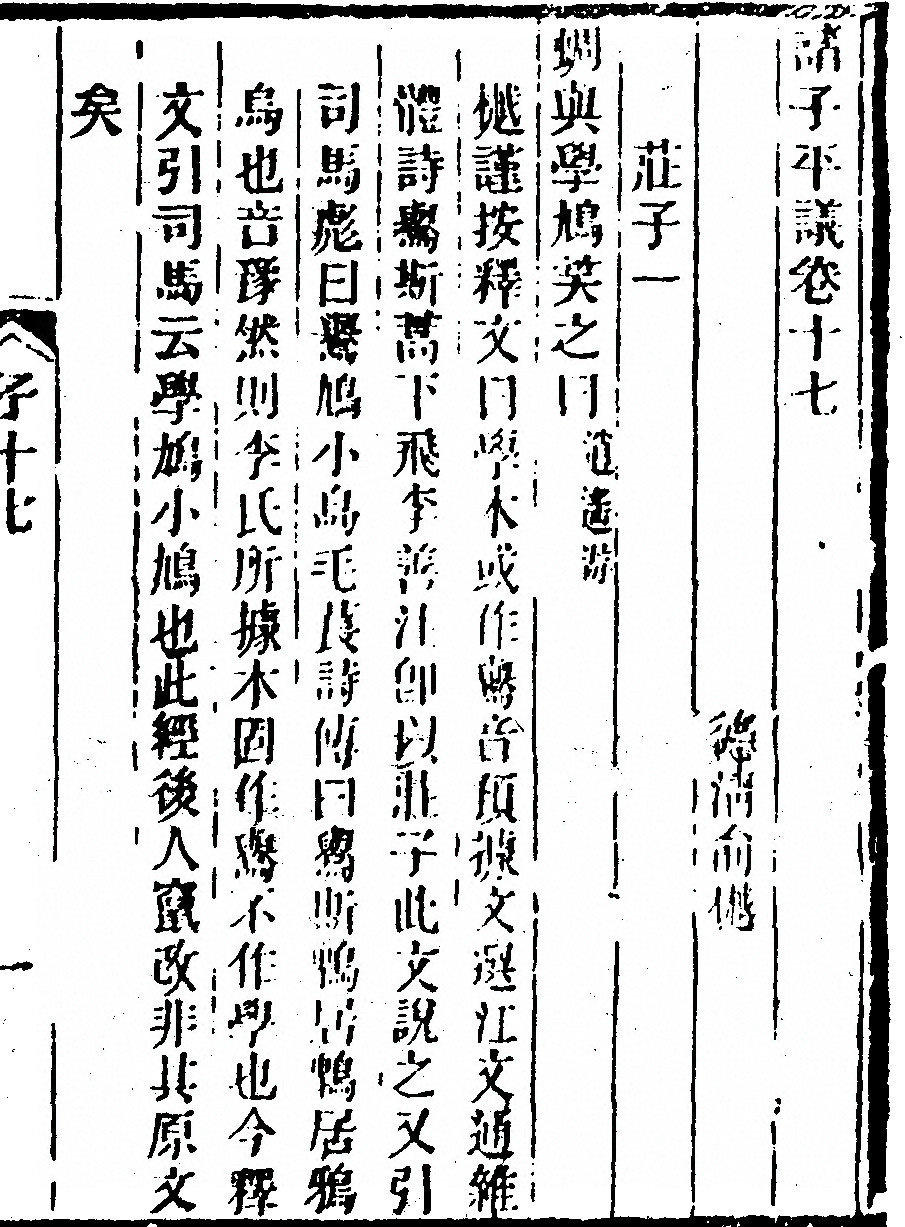 諸子平議卷十七
德清俞樾
莊子一
蜩與學鳩笑之曰逍遙游
樾謹按釋文曰學本或作鷽音預據文選江文通雜
體詩鷽斯蒿下飛李善注卽以莊子此文說之又引
司馬彪曰鷽鳩小鳥毛萇詩傳曰鷽斯鵯居鵯居鴉
烏也音豫然則李氏所據本固作鷽不作學也今釋
文引司馬云學鳩小鳩也此經後人竄改非其原文
矣
子十七
一